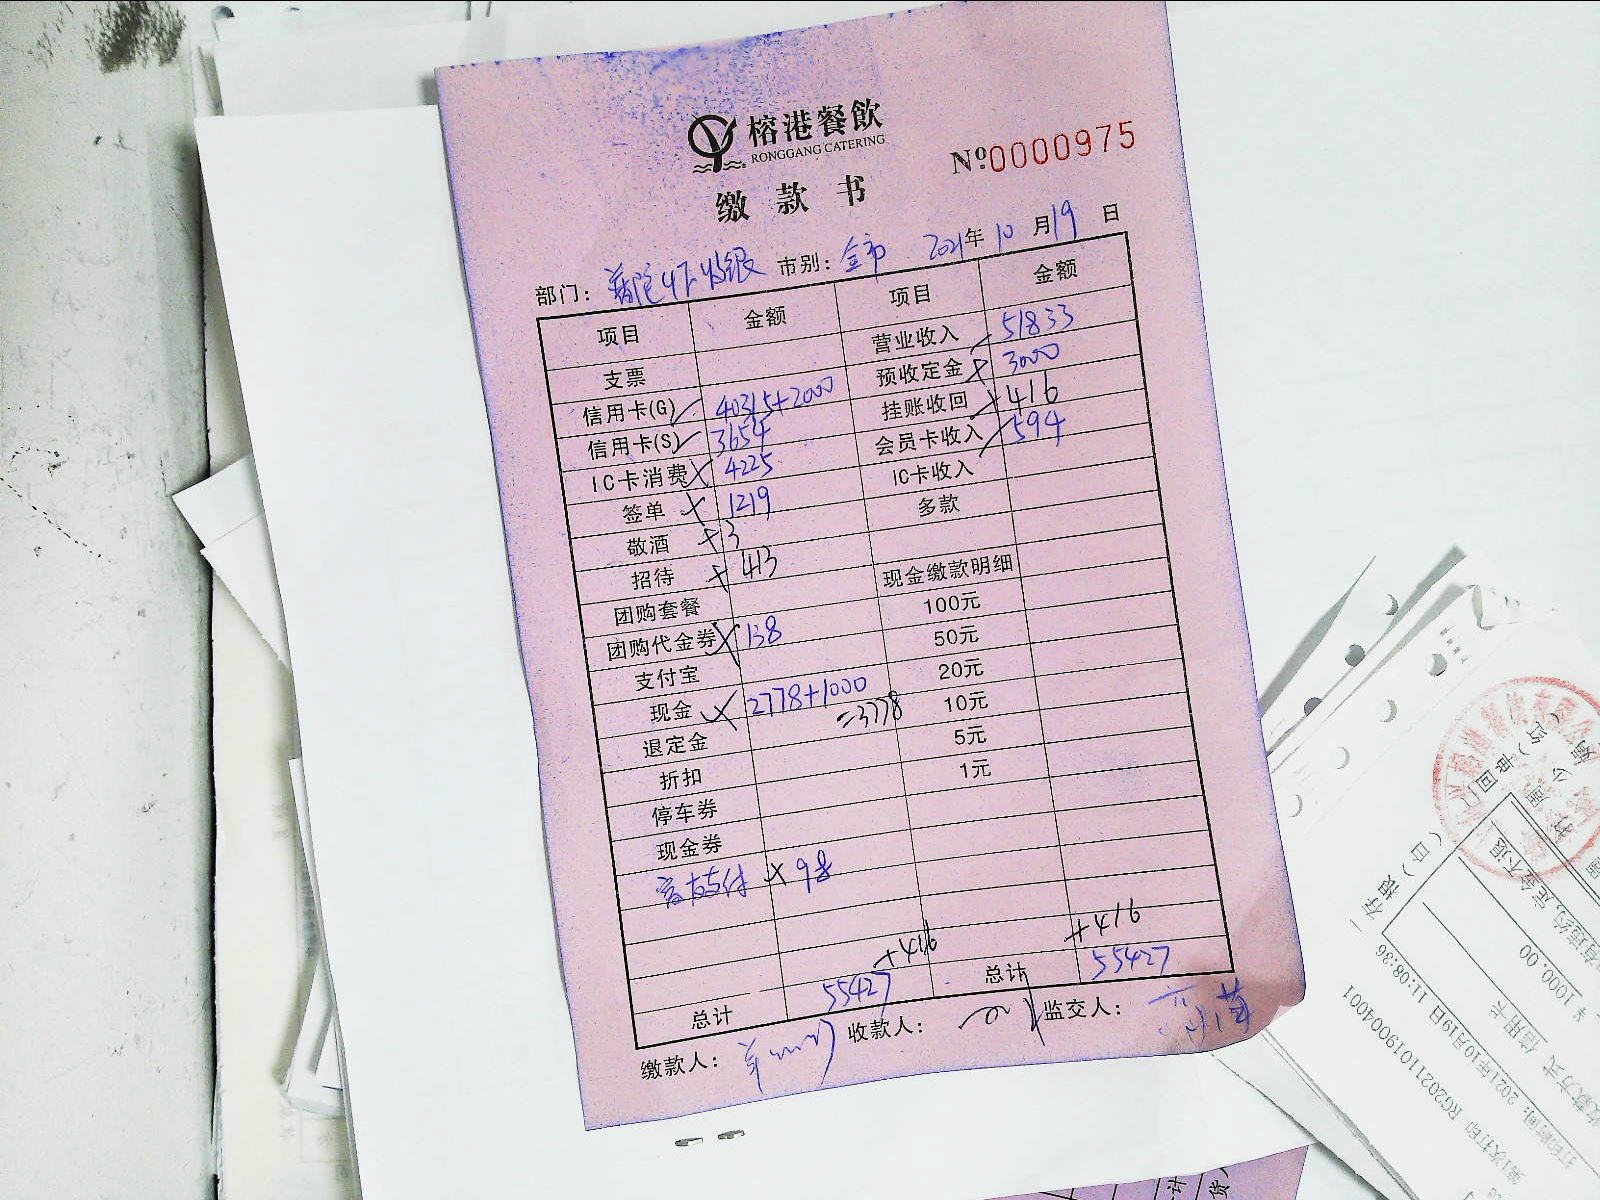 榕港餐飲
RONGGANG CATERING
缴款书
№0000975
部门： 市别：全市 2021年10月19日
项目 金额 项目 金额
支票 营业收入 51833
信用卡(G) 40315+2000 预收定金 3000
信用卡(S) 3654 挂账收回 +416
IC卡消费 4225 会员卡收入 594
签单 1219 IC卡收入
敬酒 3 多款
招待 413
团购套餐 现金缴款明细
团购代金券 138 100元
支付宝 50元
现金 2778+1000 20元
=3778
退定金 10元
折扣 5元
停车券 1元
现金券
支付 98
+416 +416
总计 55427 总计 55427
缴款人： 收款人： 监交人：
存根
(日)
审回
¥1000.00
信用卡
收款方式
打印时间: 2021年10月19日 11:08:36
第1次打印 RG20211019004001
计
货